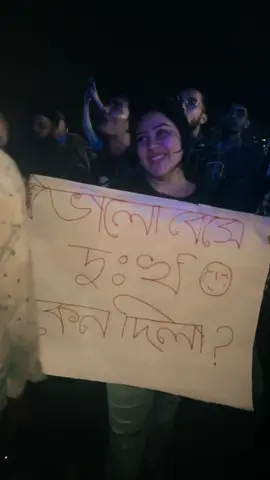 ভালোবেসে
দুঃখ
কেন দিলা?